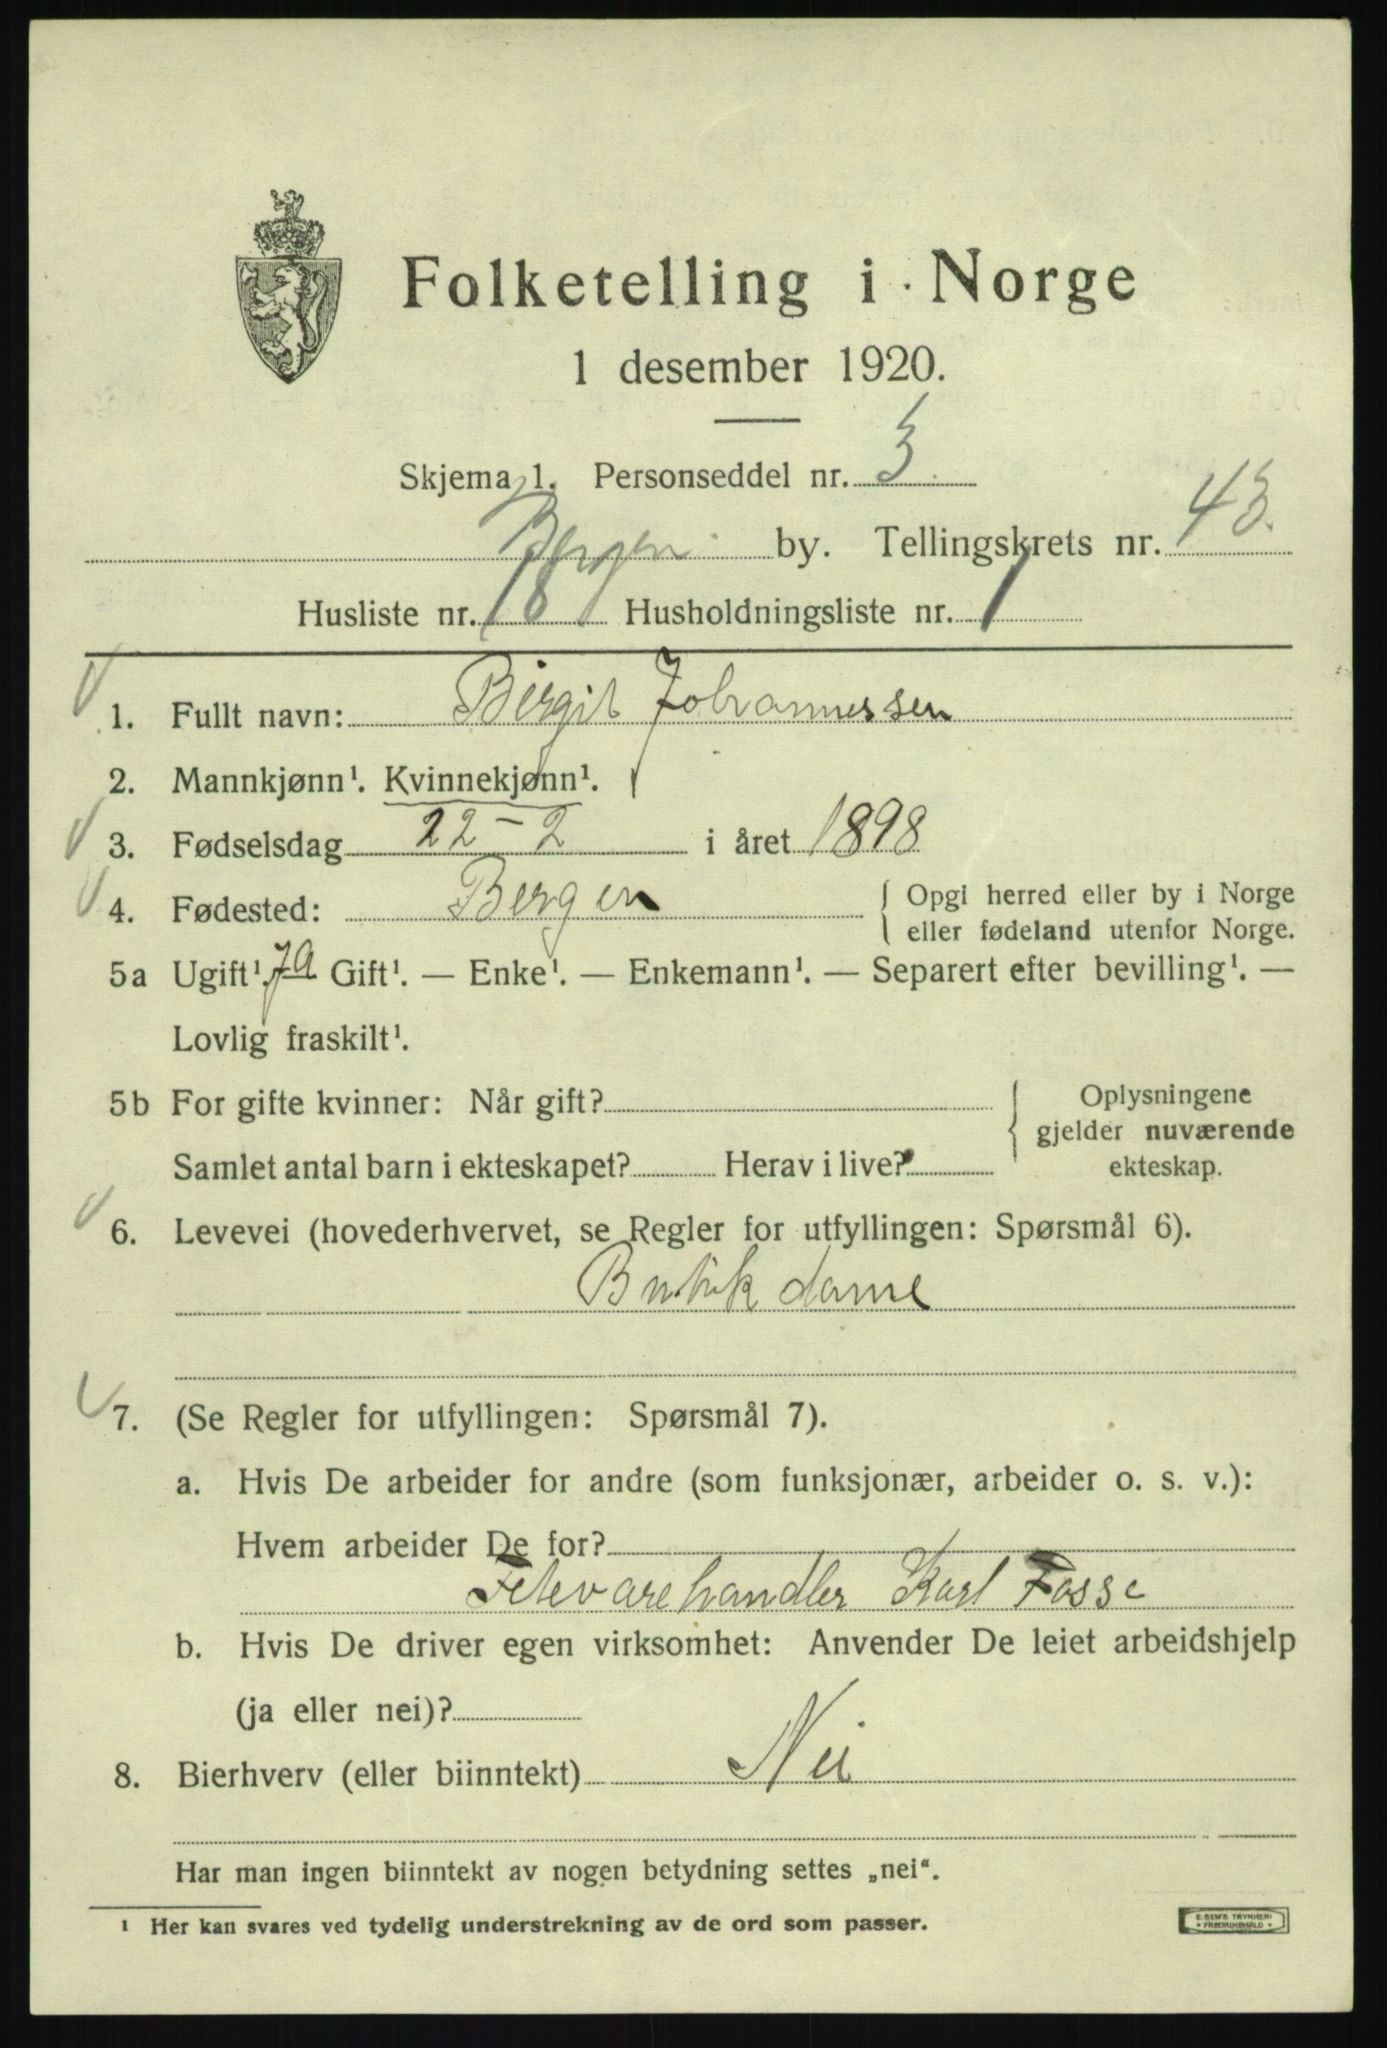 Folketelling i Norge
1 desember 1920.
Skjema 1. Personseddel nr. 3.
Bergen by. Tellingskrets nr. 43.
Husliste nr. 18 Husholdningsliste nr. 1
1. Fullt navn: Birgit Johannessen
2. Mannkjønn¹. Kvinnekjønn¹.
3. Fødselsdag 22-2 i året 1898
4. Fødested: Bergen { Opgi herred eller by i Norge
eller fødeland utenfor Norge.
5a Ugift¹. Ja Gift¹. — Enke¹. — Enkemann¹. — Separert efter bevilling¹. —
Lovlig fraskilt¹.
5b For gifte kvinner: Når gift? { Oplysningene
gjelder nuværende
Samlet antal barn i ekteskapet? Herav i live? ekteskap.
6. Levevei (hovederhvervet, se Regler for utfyllingen: Spørsmål 6).
Butik dame
7. (Se Regler for utfyllingen: Spørsmål 7).
a. Hvis De arbeider for andre (som funksjonær, arbeider o. s. v.):
Hvem arbeider De for?
Fetevarehandler Karl Fosse
b. Hvis De driver egen virksomhet: Anvender De leiet arbeidshjelp
(ja eller nei)?
8. Bierhverv (eller biinntekt) Nei
Har man ingen biinntekt av nogen betydning settes „nei“.
¹ Her kan svares ved tydelig understrekning av de ord som passer.
E. SEM'S TRYKKERI
• FREDRIKSHALD •